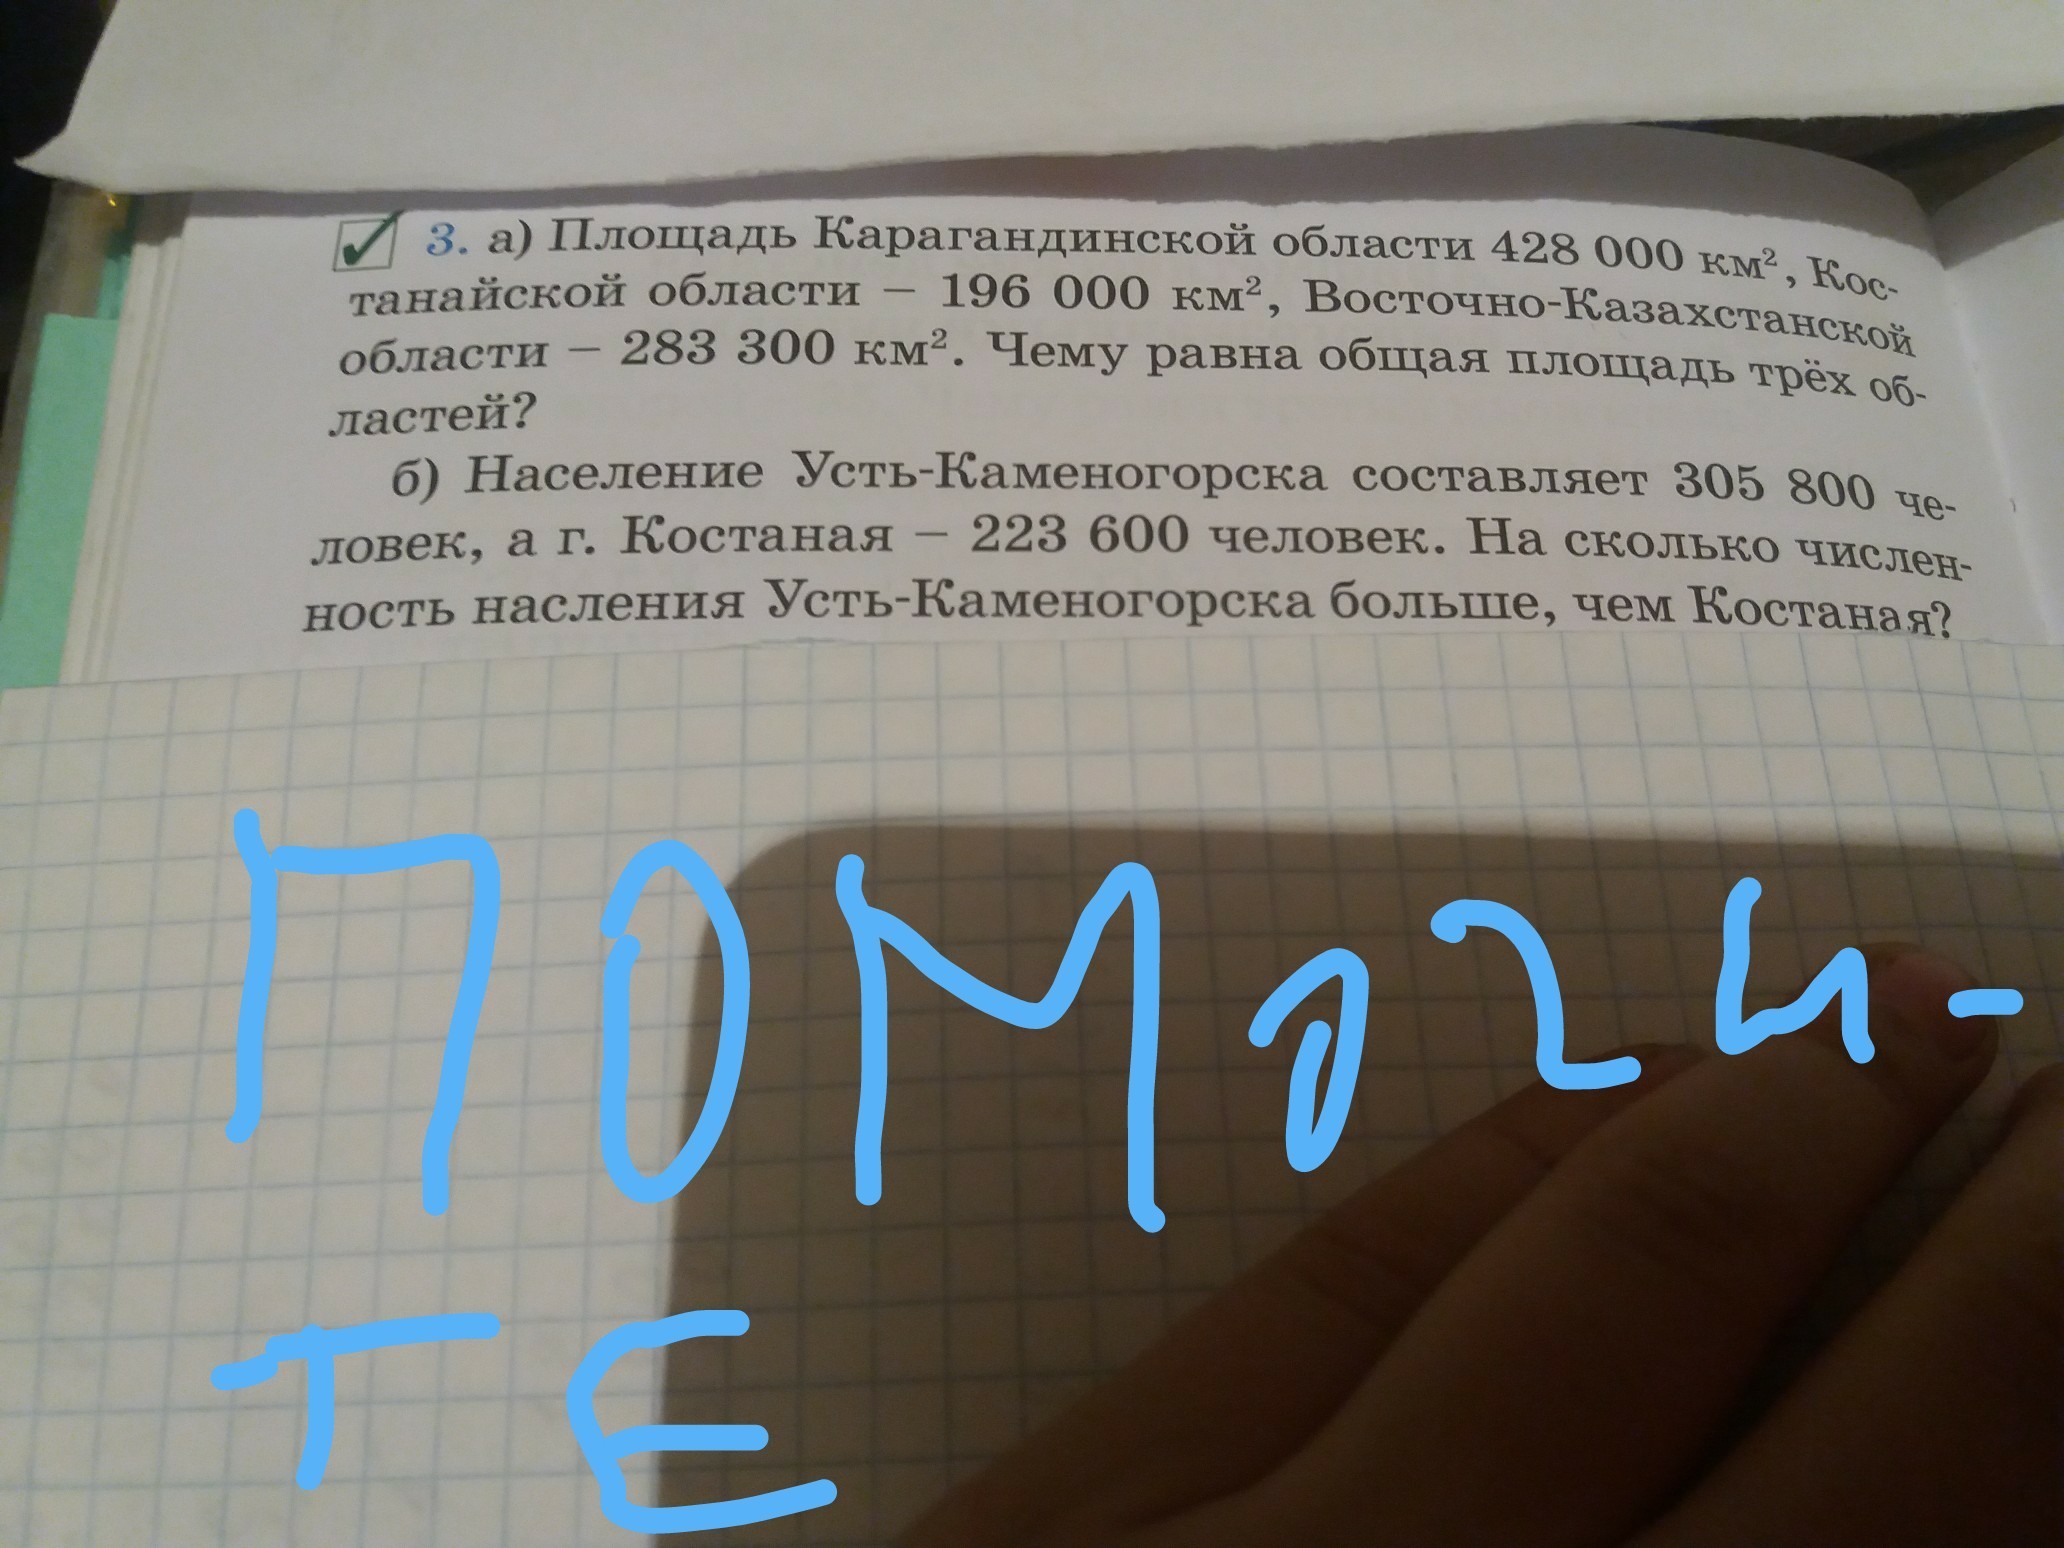 3. а) Площадь Карагандинской области 428 000 км², Кос-
танайской области – 196 000 км², Восточно-Казахстанской
области – 283 300 км². Чему равна общая площадь трёх об-
ластей?
б) Население Усть-Каменогорска составляет 305 800 че-
ловек, а г. Костаная – 223 600 человек. На сколько числен-
ность насления Усть-Каменогорска больше, чем Костаная?
ПОМОги-
ТЕ